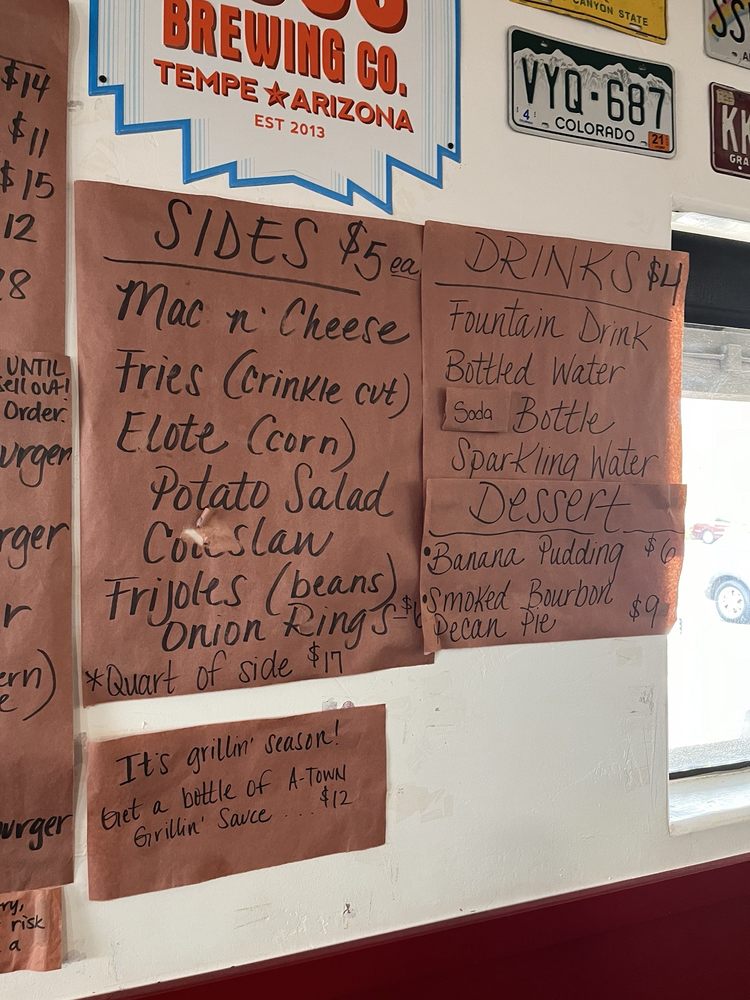 BREWING CO.
TEMPE ★ ARIZONA
EST 2013
CANYON STATE
VYQ·687
4
COLORADO
21
$14
$11
$15
12
UNTIL
Order.
SIDES $5 ea
Mac n' Cheese
Fries (crinkle cut)
Elote (corn)
Potato Salad
Coleslaw
Frijoles (beans)
Onion Rings
*Quart of side $17
DRINKS $4
Fountain Drink
Bottled Water
Soda Bottle
Sparkling Water
Dessert
•Banana Pudding $6
•Smoked Bourbon
Pecan Pie $9
It's grillin' season!
Get a bottle of A-TOWN
Grillin' Sauce .... $12
risk
a